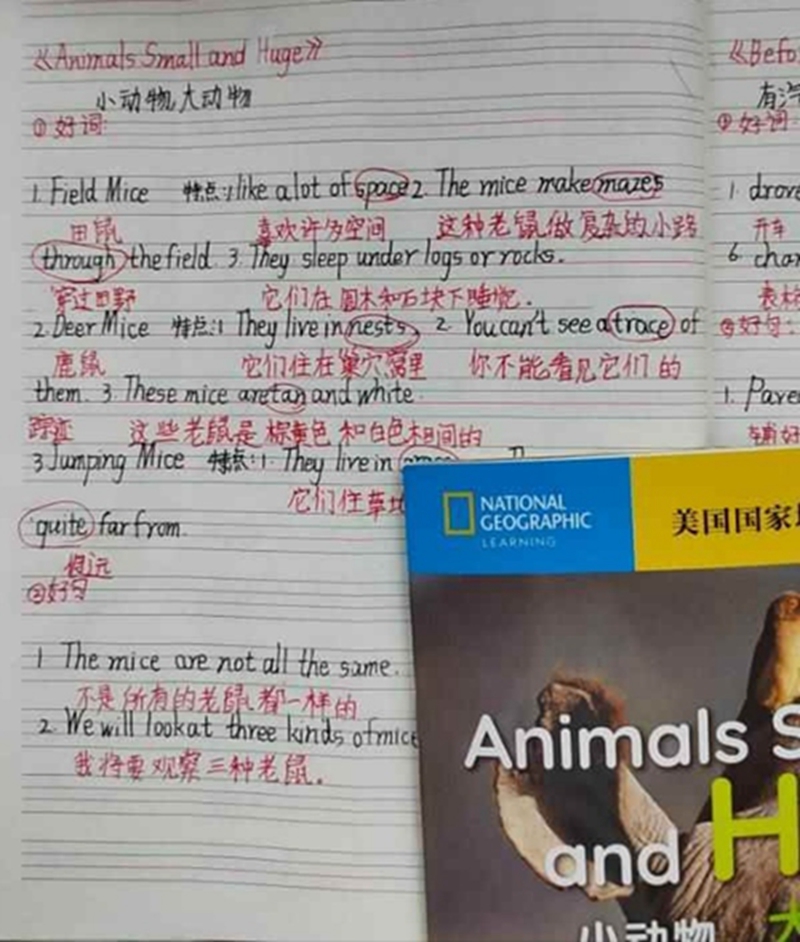 《Animals Small and Huge》
小动物大动物
①好词:
1. Field Mice 特点:1 like a lot of space 2. The mice make mazes
田鼠 喜欢许多空间 这种老鼠做复杂的小路
through the field. 3. They sleep under logs or rocks.
穿过田野 它们在圆木和石块下睡觉.
2. Deer Mice 特点:1 They live in nests. 2. You can't see a trace of
鹿鼠 它们住在巢穴窝里 你不能看见它们的
them. 3. These mice are tan and white.
踪迹 这些老鼠是棕黄色和白色相间的
3 Jumping Mice 特点:1. They live in
它们住草
quite far from.
很远
②好句
1 The mice are not all the same.
不是所有的老鼠都一样的
2. We will look at three kinds of mice
我将要观察三种老鼠.
《Befo
①好词
1. drove
开车
6. char
②好句:
1. Pare
NATIONAL
GEOGRAPHIC
LEARNING
美国国家
Animals S
and H
小动物 大